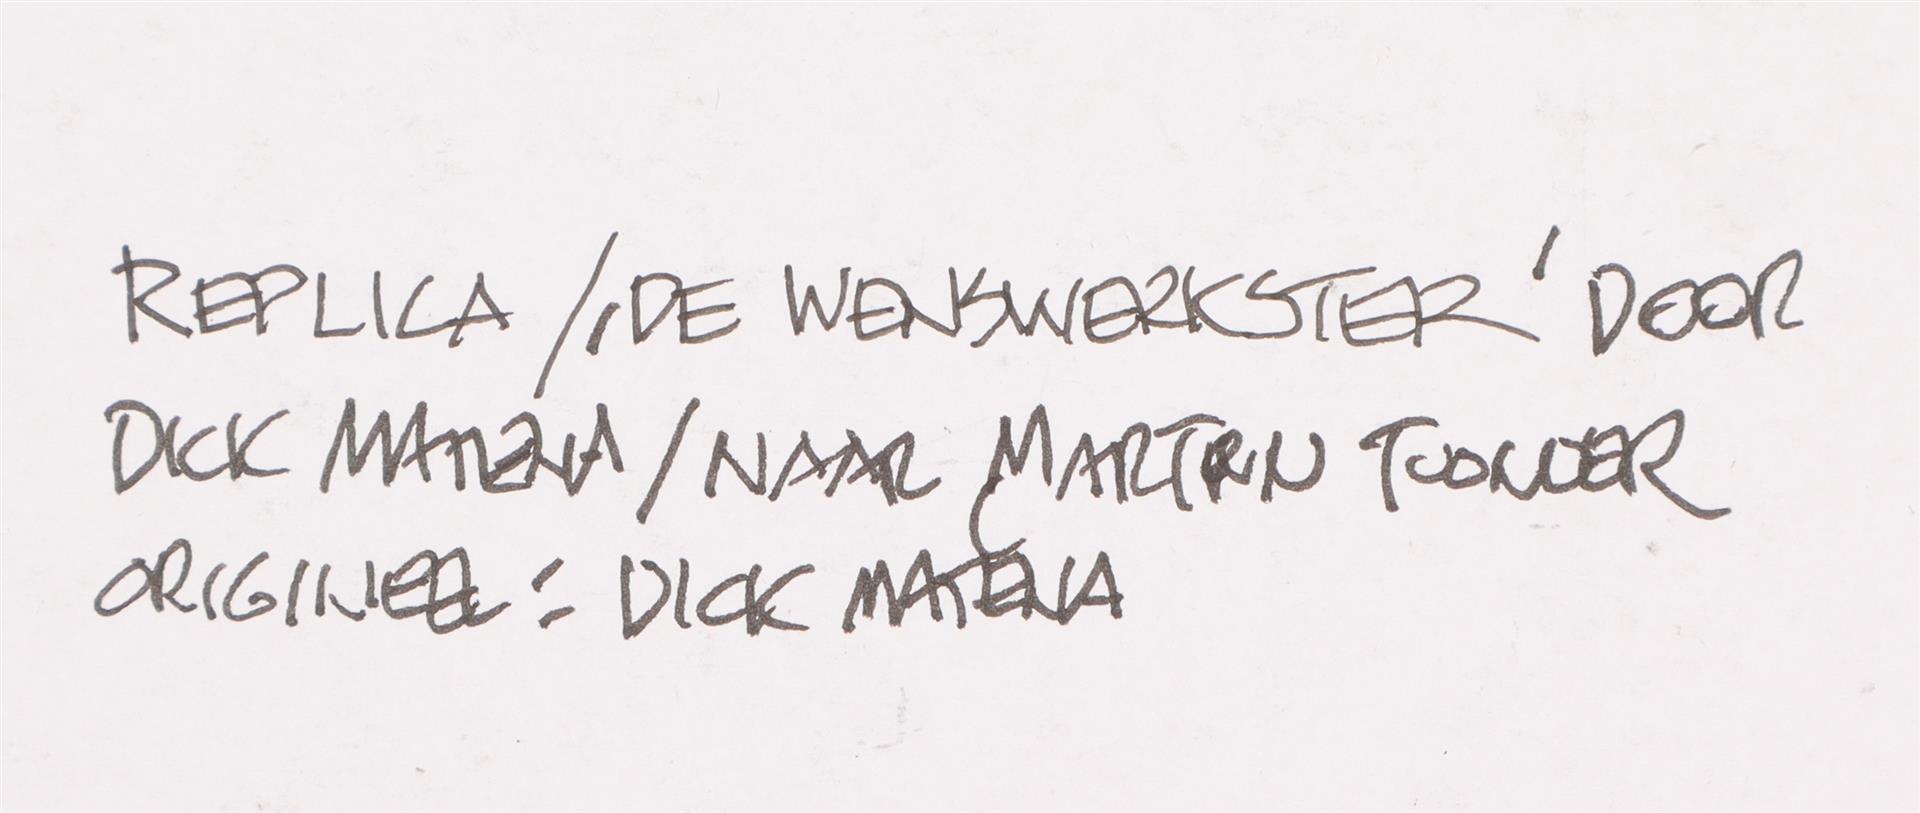 REPLICA / 'DE WENSWERKSTER' DOOR
DICK MATENA / NAAR MARTEN TOONDER
ORIGINEEL : DICK MATENA